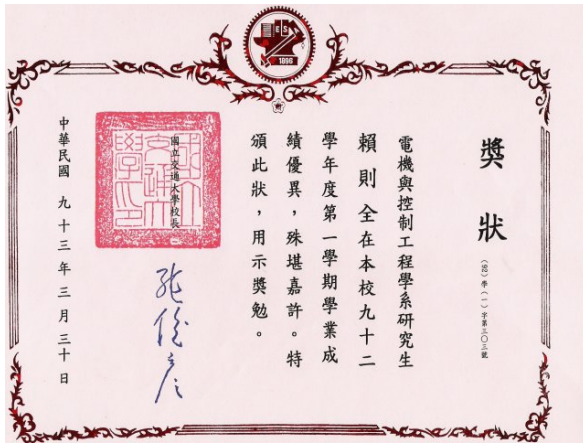 獎狀
(92)學(一)字第三〇三號
電機與控制工程學系研究生
賴則全在本校九十二
學年度第一學期學業成
績優異,殊堪嘉許。特
頒此狀,用示獎勉。
國立交通大學校長
張俊彥
中華民國 九十三年三月三十日
ES
1896